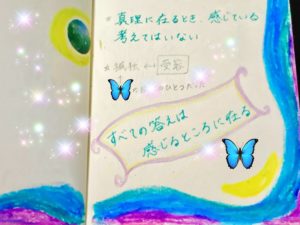 *真理に在るとき、感じている
考えてはいない
* 孤独 ↔ 受容
のひとつだった
すべての答えは
感じるところに在る